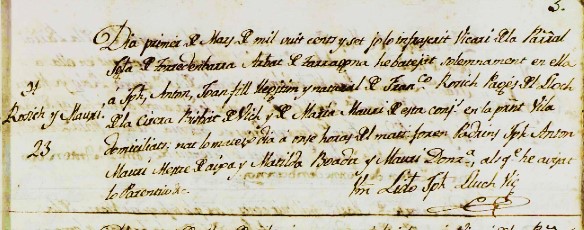 5.
Dia primer de Mars de mil vuit cents y set jo lo infrascrit Vicari de la Parral
Igla de Torredembarra Arbat de Tarragona he batejat solemnament en ella
á Jph, Anton, Joan fill llegitim y natural de Franco Rosich Pagés del Lloch
de la Bisbat de Vich y de Maria Mauri de esta conjs en la pnt Vila
domiciliats; nat lo mateix dia á onse horas del mati: foren Padrins Jph Anton
Mauri Mestre de aixa y Matilda Boada y Mauri Donza, als qs he avisat
lo Parentiu &
Vm Lido Jph Lluch Vic
21
Rosich y Mauri.
23